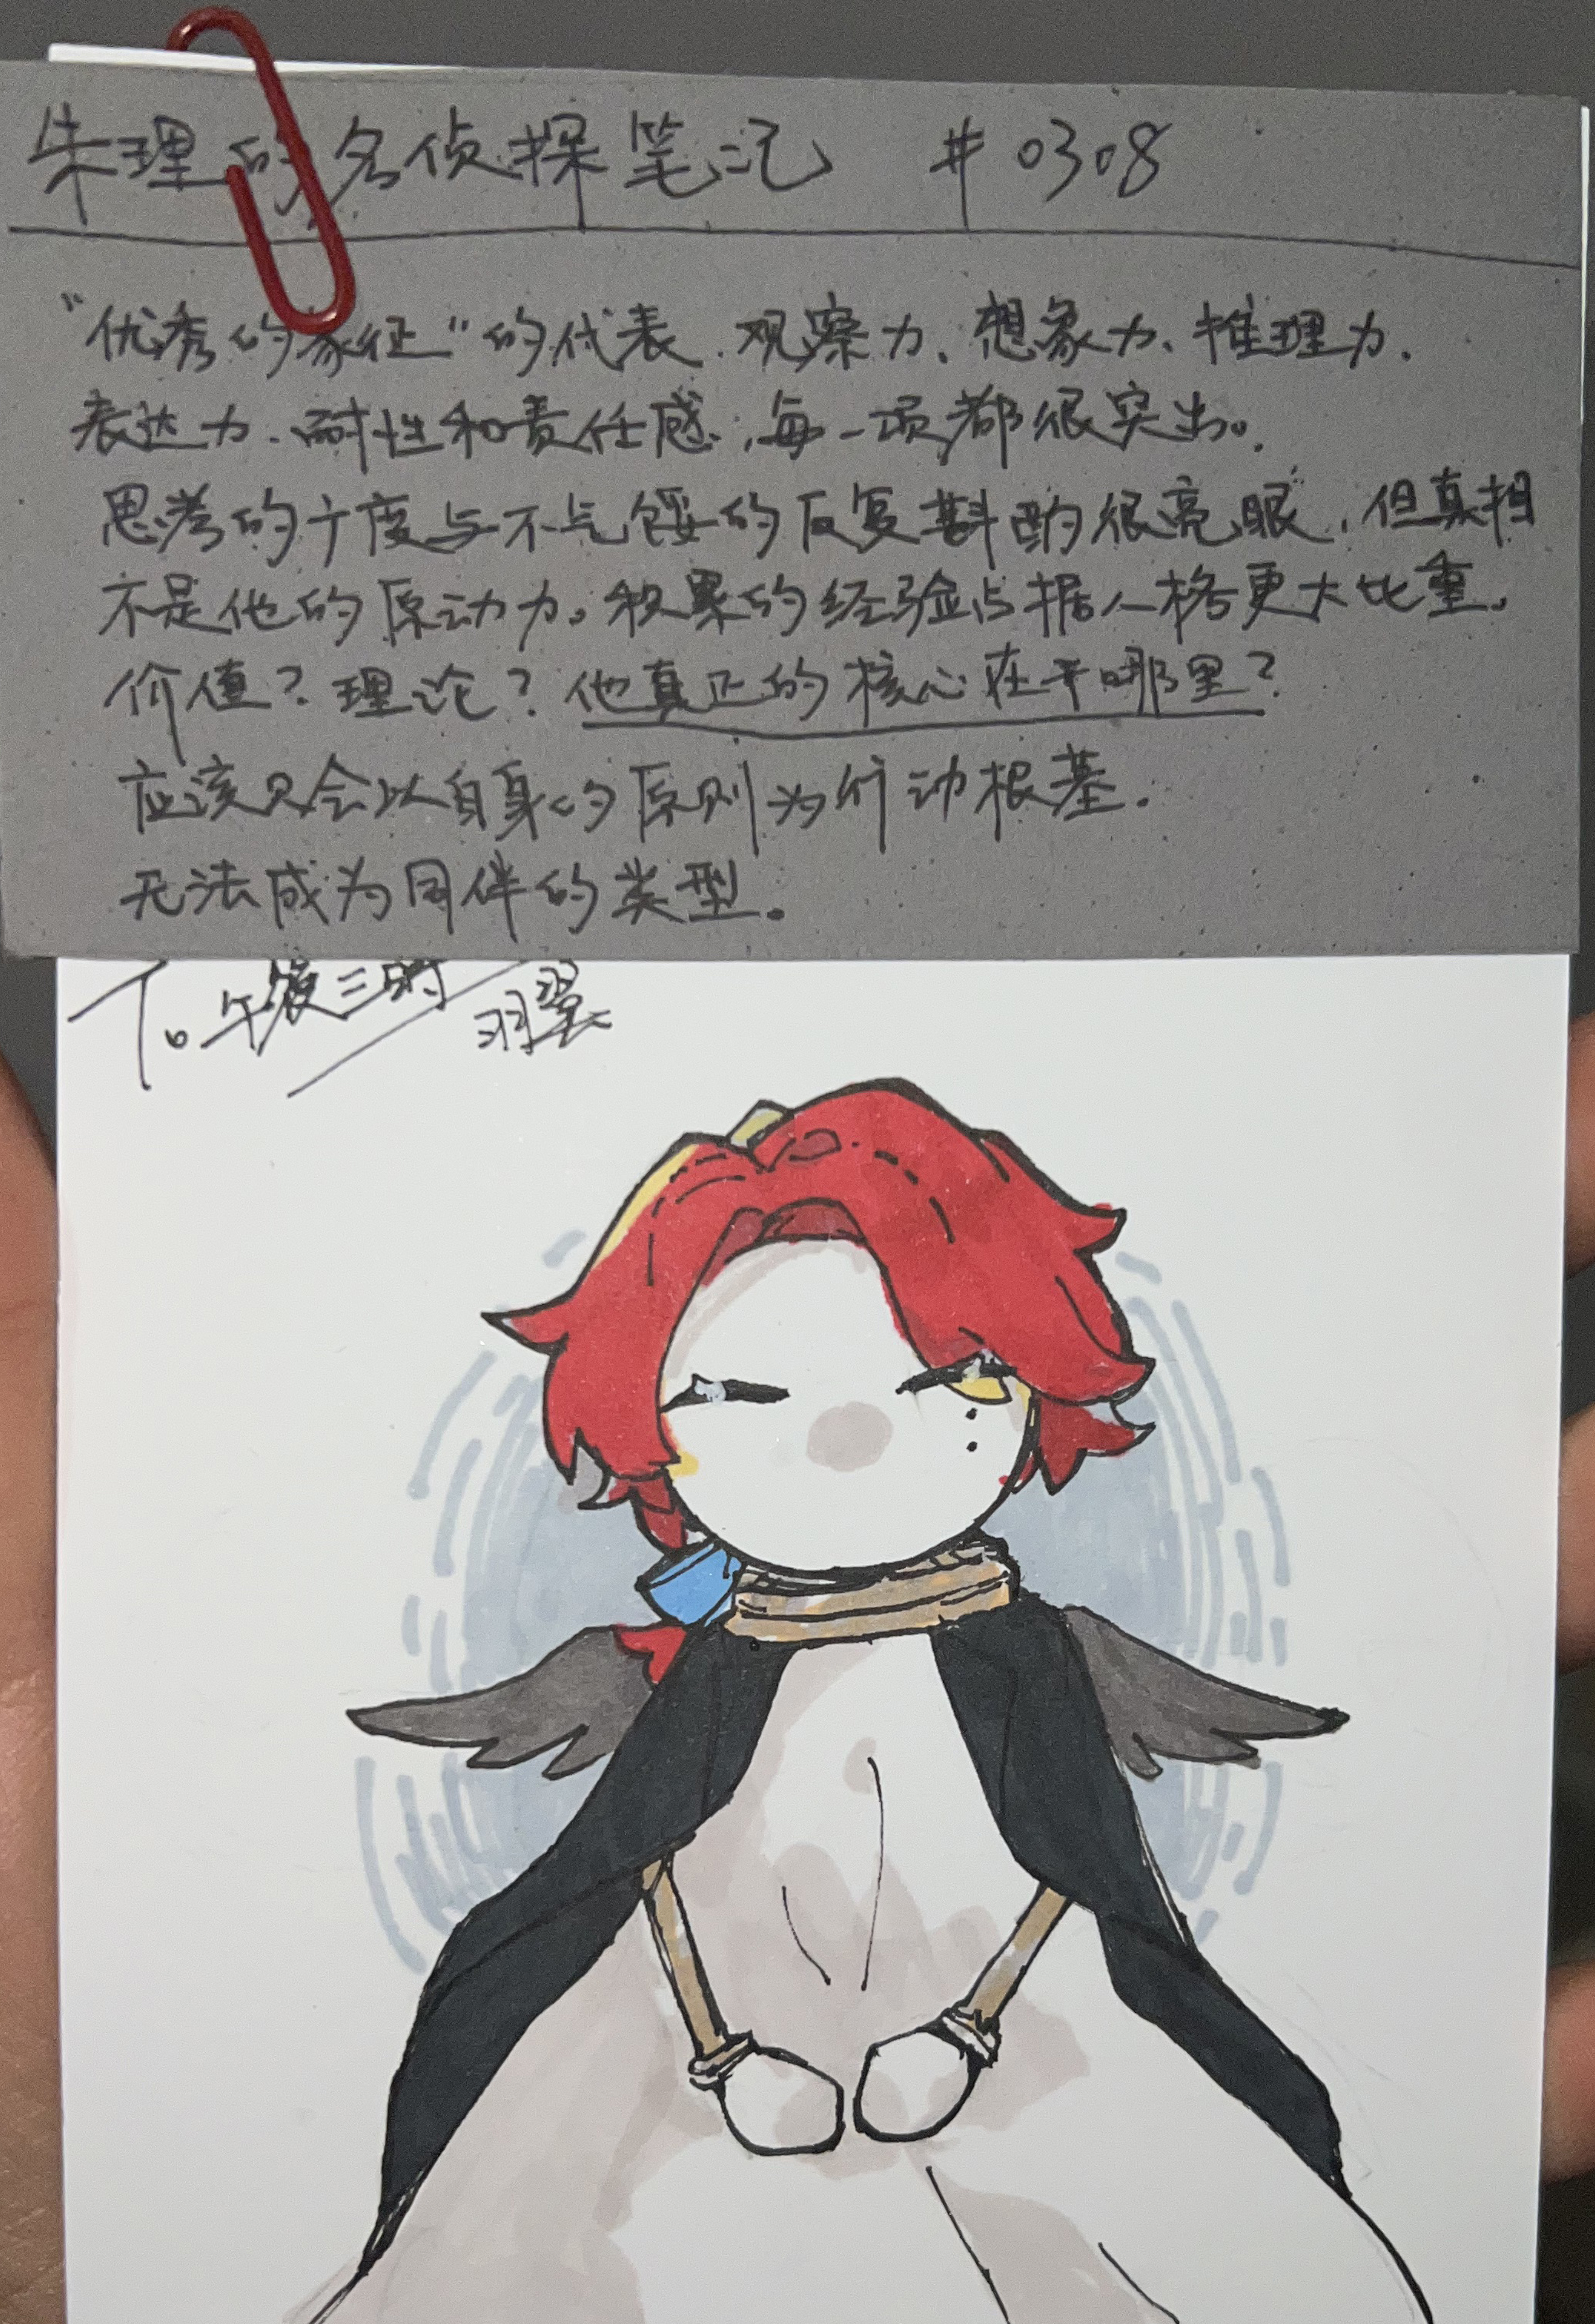 朱理的名侦探笔记 #0308
"优秀的象征"的代表.观察力、想象力、推理力、
表达力、耐性和责任感,每一项都很突出。
思考的广度与不气馁的反复斟酌很亮眼,但真相
不是他的原动力。积累的经验占据人格更大比重。
价值?理论?他真正的核心在乎哪里?
应该只会以自身的原则为行动根基.
无法成为同伴的类型。
To.午夜三时
羽翼